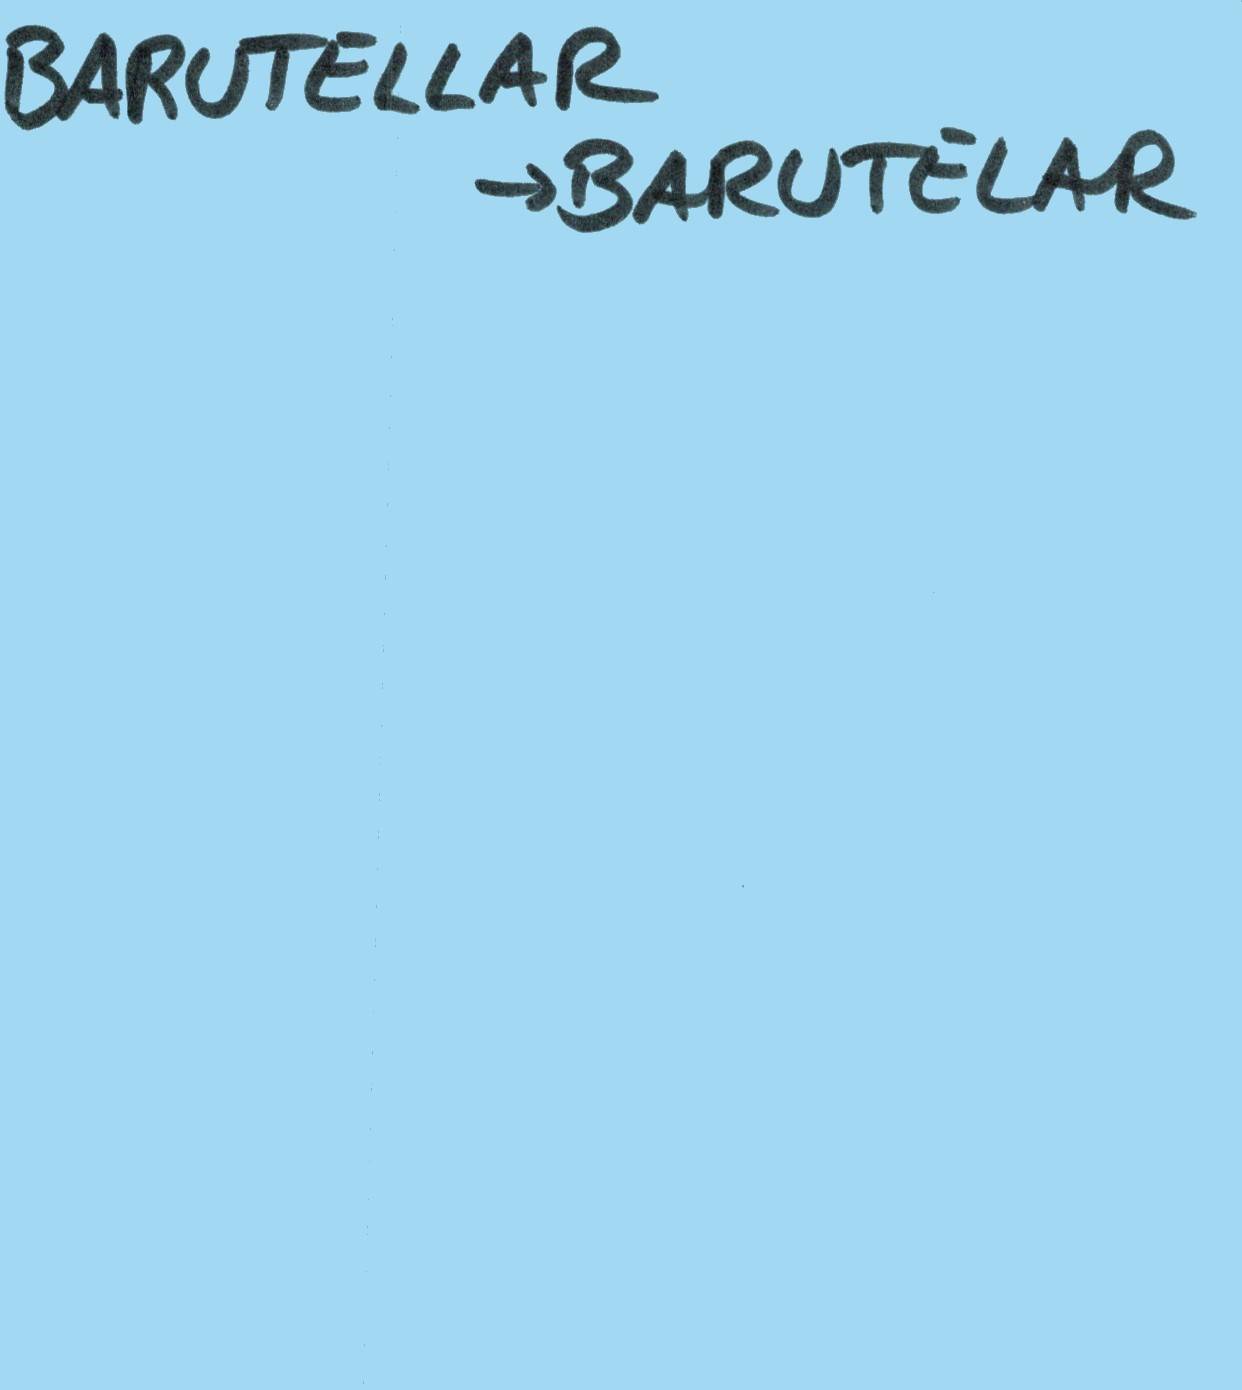 BARUTELLAR
→BARUTELAR